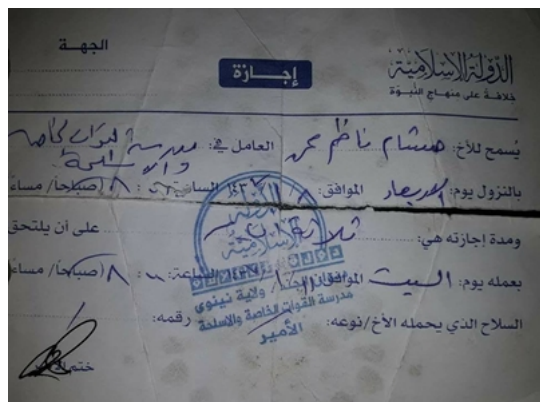 الجهة
إجازة
الدولة الإسلامية
خلافة على منهاج النبوة
يُسمح للأخ: هشام ناظم العامل في: مدرسة القوات الخاصة
والأسلحة
بالنزول يوم: الاربعاء الموافق: ١٤٣٧ الساعة: ٨ (صباحاً/ مساءً
ومدة إجازته هي: ثلاثة ايام على أن يلتحق
بعمله يوم: السبت الموافق: الساعة: ٨ (صباحاً/ مساءً
السلاح الذي يحمله الأخ/نوعه: رقمه:
الدولة الإسلامية
ديوان الجند/ ولاية نينوى
مدرسة القوات الخاصة والاسلحة
الأمير